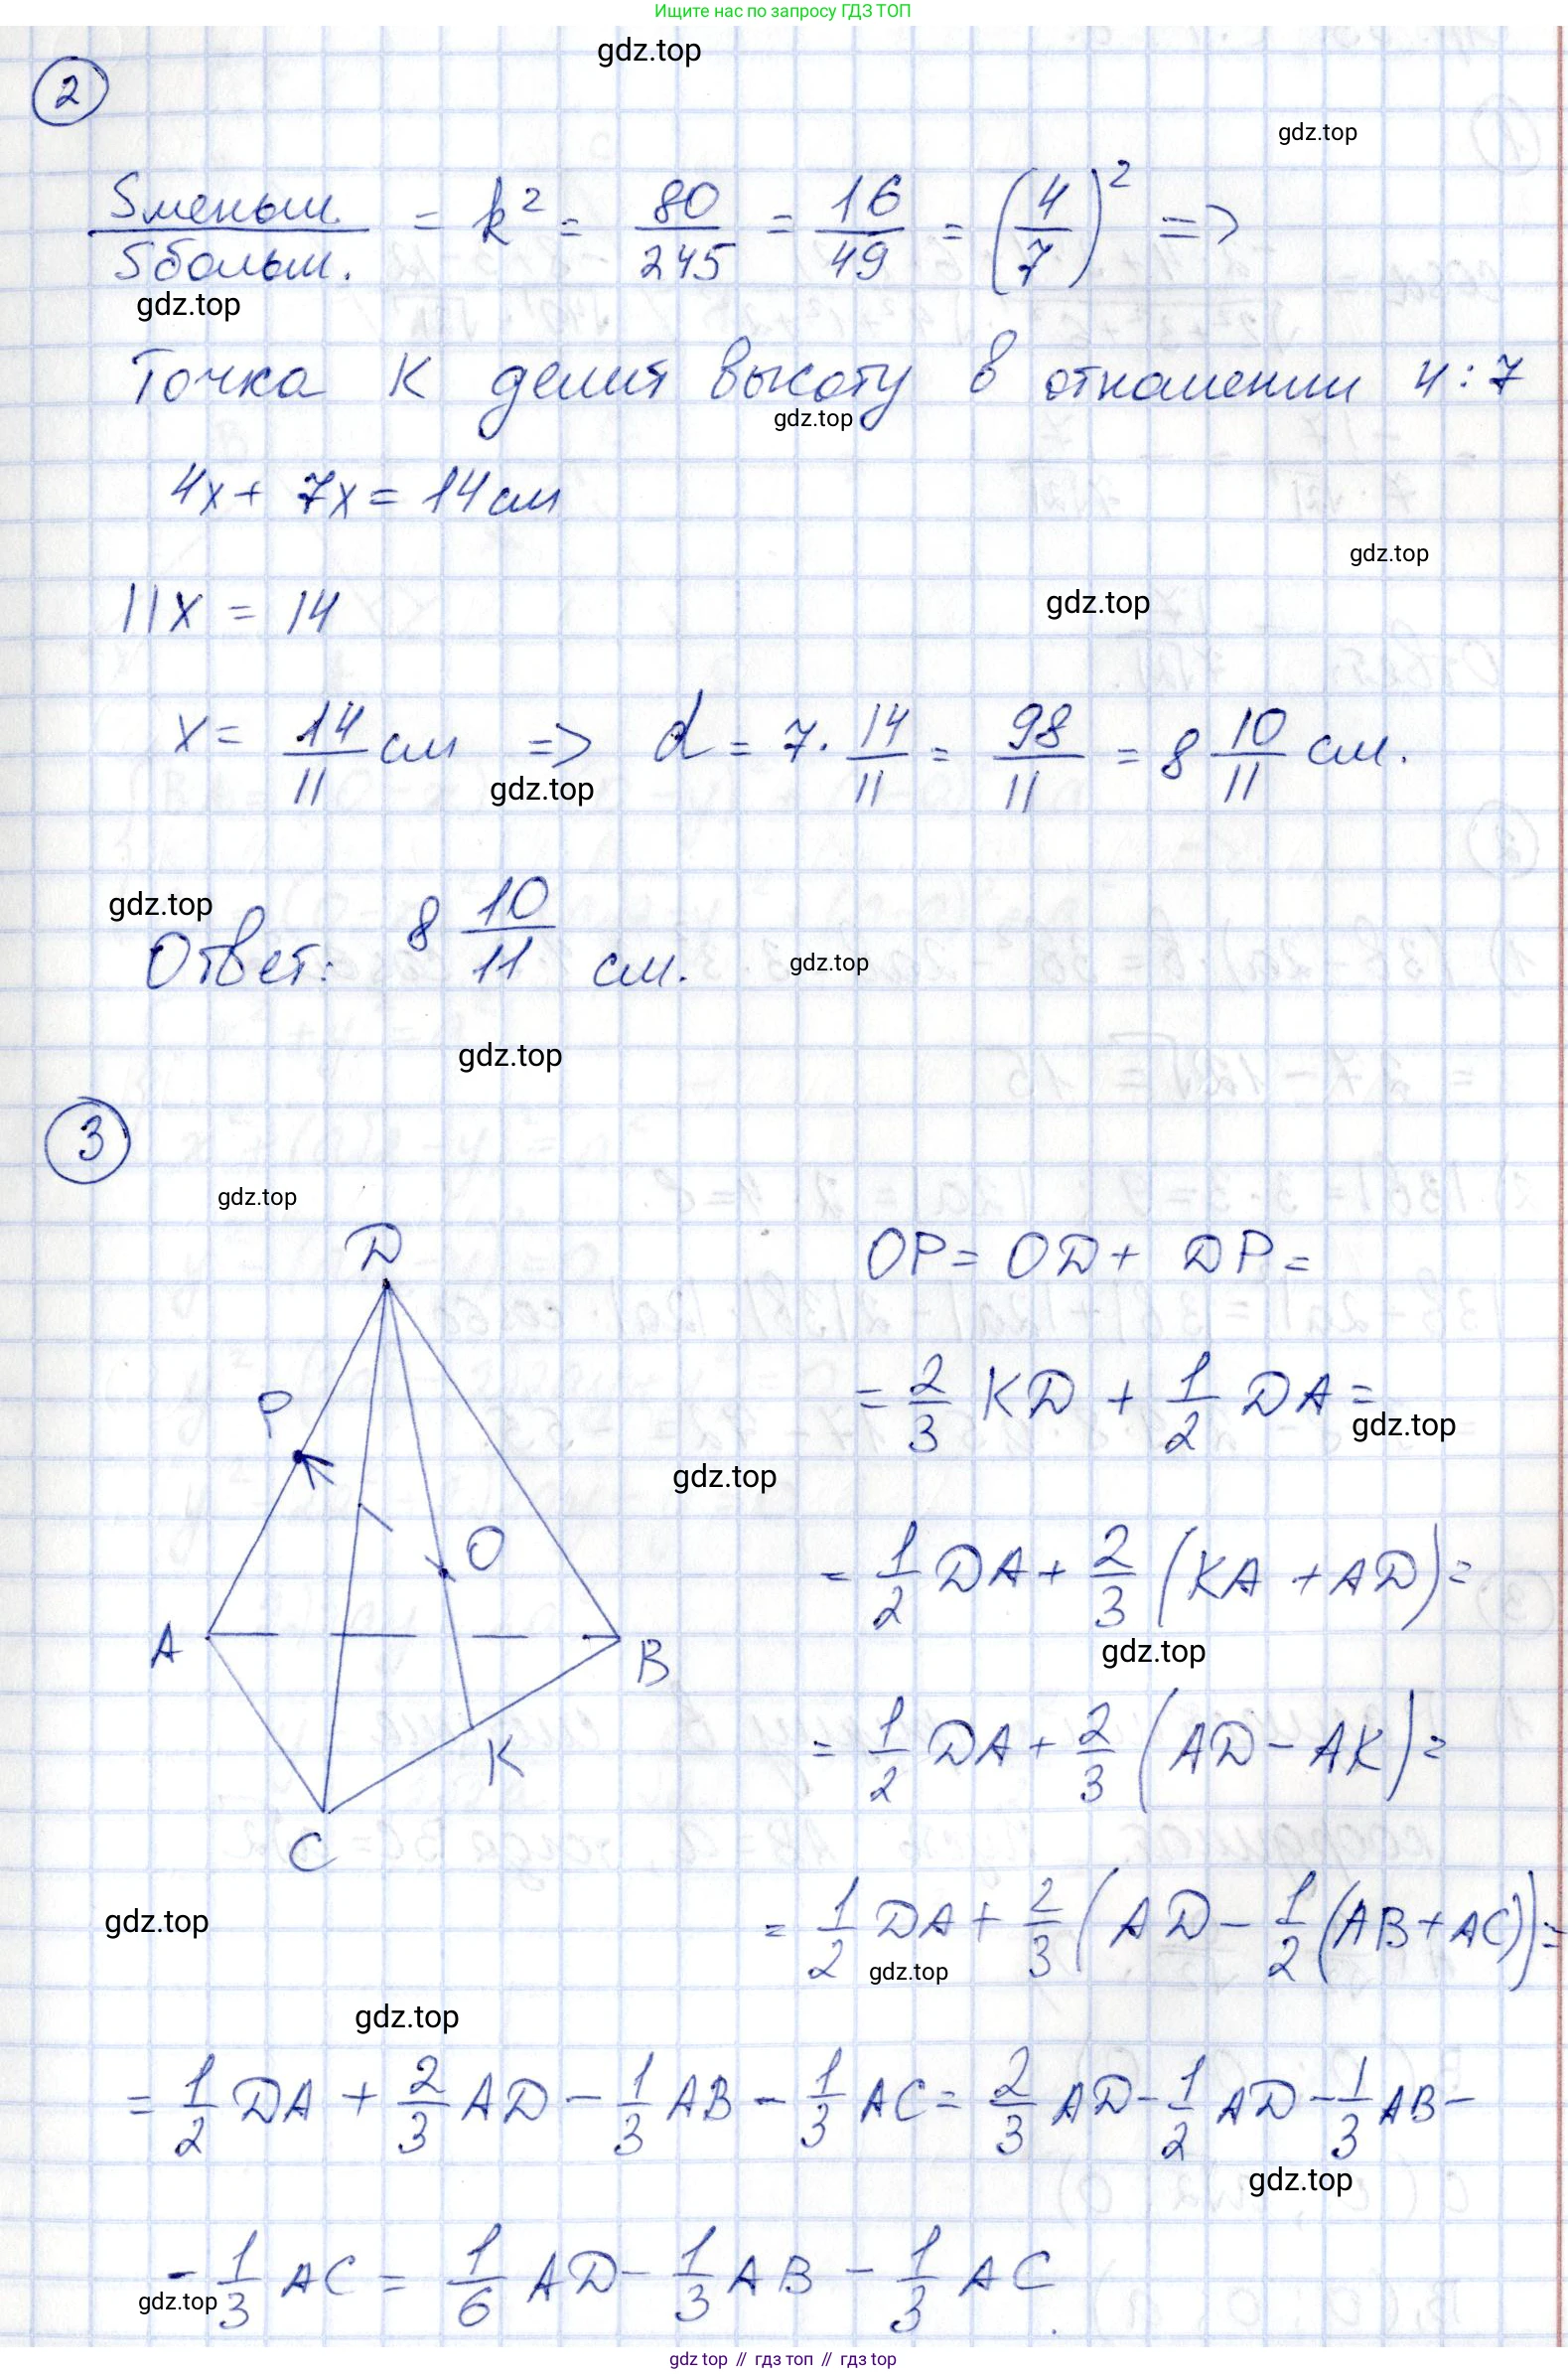 Ищите нас по запросу ГДЗ ТОП
gdz.top
2
gdz.top
Sменьш. / Sбольш. = k² = 80/245 = 16/49 = (4/7)² =>
gdz.top
Точка K делит высоту в отношении 4:7
gdz.top
4x + 7x = 14 см
gdz.top
11x = 14
gdz.top
x = 14/11 см => d = 7 · 14/11 = 98/11 = 8 10/11 см.
gdz.top
gdz.top
Ответ: 8 10/11 см.
gdz.top
gdz.top
3
gdz.top
D
P
O
A
B
K
C
OP = OD + DP =
= 2/3 KD + 1/2 DA =
gdz.top
gdz.top
= 1/2 DA + 2/3 (KA + AD) =
gdz.top
= 1/2 DA + 2/3 (AD - AK) =
gdz.top
= 1/2 DA + 2/3 (AD - 1/2 (AB + AC)) =
gdz.top
gdz.top
= 1/2 DA + 2/3 AD - 1/3 AB - 1/3 AC = 2/3 AD - 1/2 AD - 1/3 AB -
gdz.top
- 1/3 AC = 1/6 AD - 1/3 AB - 1/3 AC.
gdz.top
gdz top // гдз топ // гдз top